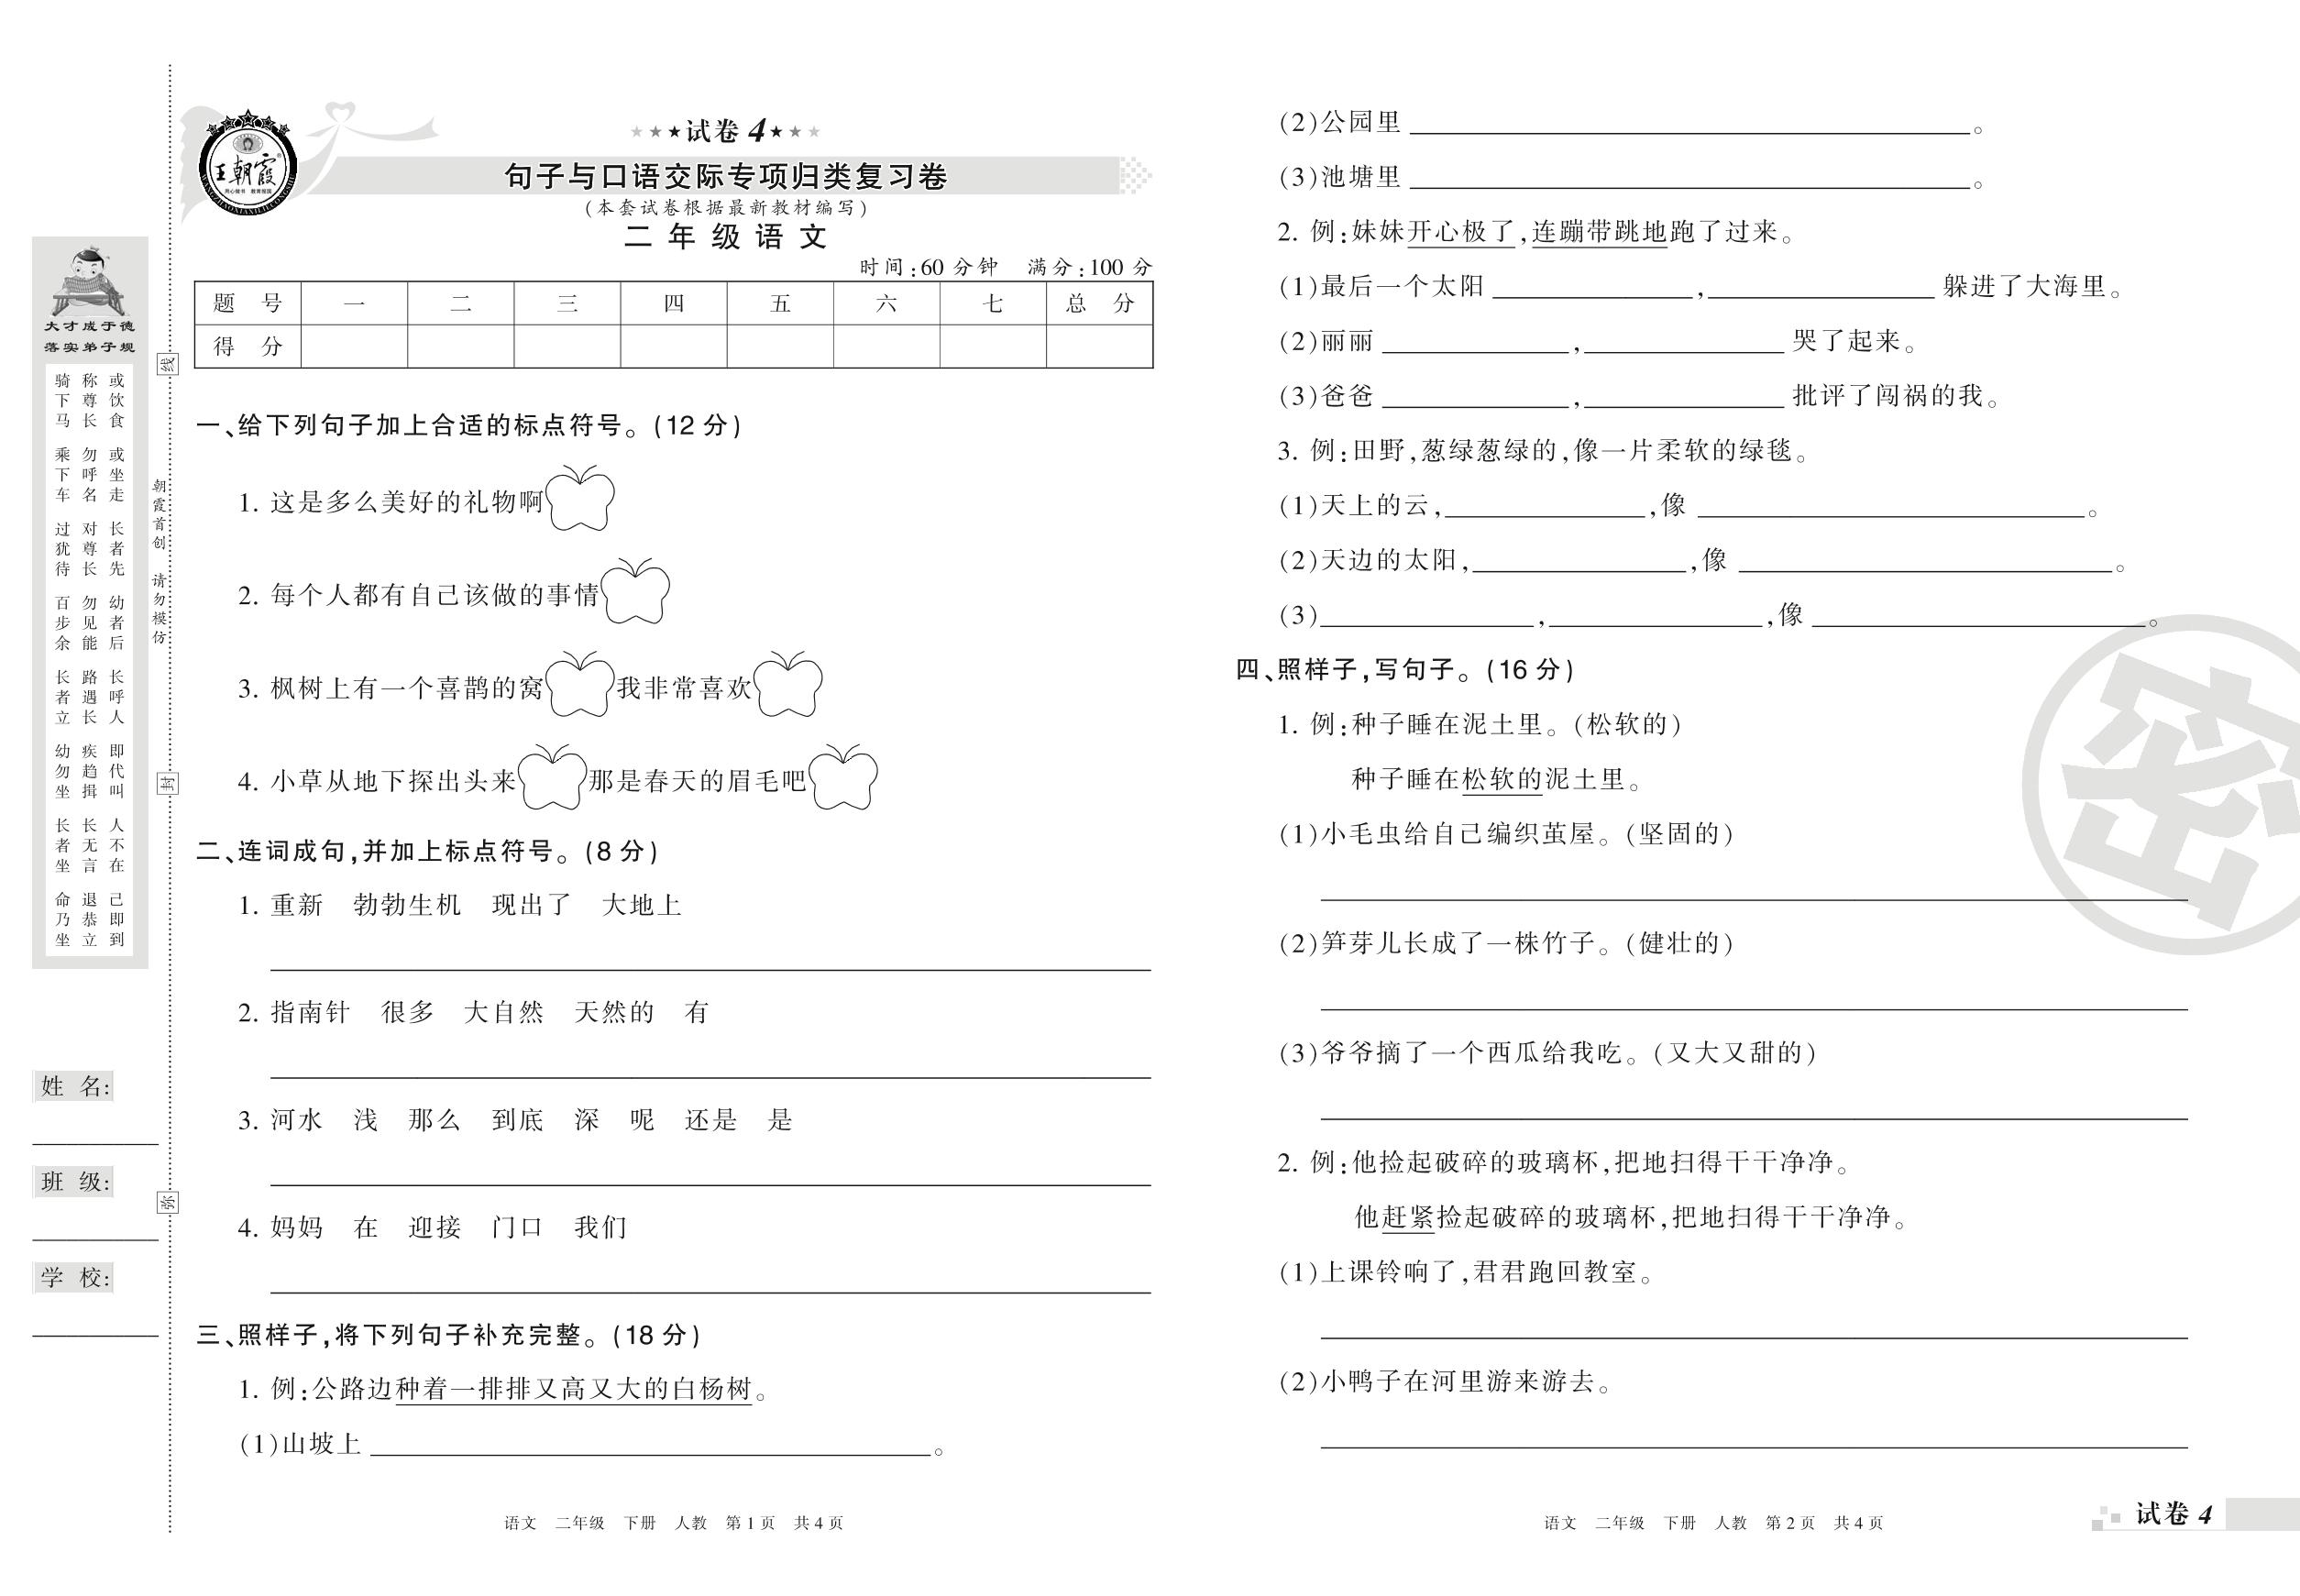 ★★★试卷 4★★★
王朝霞
句子与口语交际专项归类复习卷
(本套试卷根据最新教材编写)
二年级语文
时间:60 分钟 满分:100 分
题 号 一 二 三 四 五 六 七 总 分
得 分
大才成于德
落实弟子规
或饮食 或坐走 长者先 幼者后 长呼人 即代叫 人不在 己即到
称尊长 勿呼名 对尊长 勿见能 路遇长 疾趋揖 长无言 退恭立
骑下马 乘下车 过犹待 百步余 长者立 幼勿坐 长者坐 命乃坐
朝霞首创 请勿模仿
线
封
弥
姓 名:
班 级:
学 校:
一、给下列句子加上合适的标点符号。(12 分)
1. 这是多么美好的礼物啊
2. 每个人都有自己该做的事情
3. 枫树上有一个喜鹊的窝 我非常喜欢
4. 小草从地下探出头来 那是春天的眉毛吧
二、连词成句,并加上标点符号。(8 分)
1. 重新 勃勃生机 现出了 大地上
2. 指南针 很多 大自然 天然的 有
3. 河水 浅 那么 到底 深 呢 还是 是
4. 妈妈 在 迎接 门口 我们
三、照样子,将下列句子补充完整。(18 分)
1. 例:公路边种着一排排又高又大的白杨树。
(1)山坡上 。
语文 二年级 下册 人教 第 1 页 共 4 页
(2)公园里 。
(3)池塘里 。
2. 例:妹妹开心极了,连蹦带跳地跑了过来。
(1)最后一个太阳 , 躲进了大海里。
(2)丽丽 , 哭了起来。
(3)爸爸 , 批评了闯祸的我。
3. 例:田野,葱绿葱绿的,像一片柔软的绿毯。
(1)天上的云, ,像 。
(2)天边的太阳, ,像 。
(3) , ,像 。
四、照样子,写句子。(16 分)
1. 例:种子睡在泥土里。(松软的)
种子睡在松软的泥土里。
(1)小毛虫给自己编织茧屋。(坚固的)
(2)笋芽儿长成了一株竹子。(健壮的)
(3)爷爷摘了一个西瓜给我吃。(又大又甜的)
2. 例:他捡起破碎的玻璃杯,把地扫得干干净净。
他赶紧捡起破碎的玻璃杯,把地扫得干干净净。
(1)上课铃响了,君君跑回教室。
(2)小鸭子在河里游来游去。
密
语文 二年级 下册 人教 第 2 页 共 4 页
试卷 4